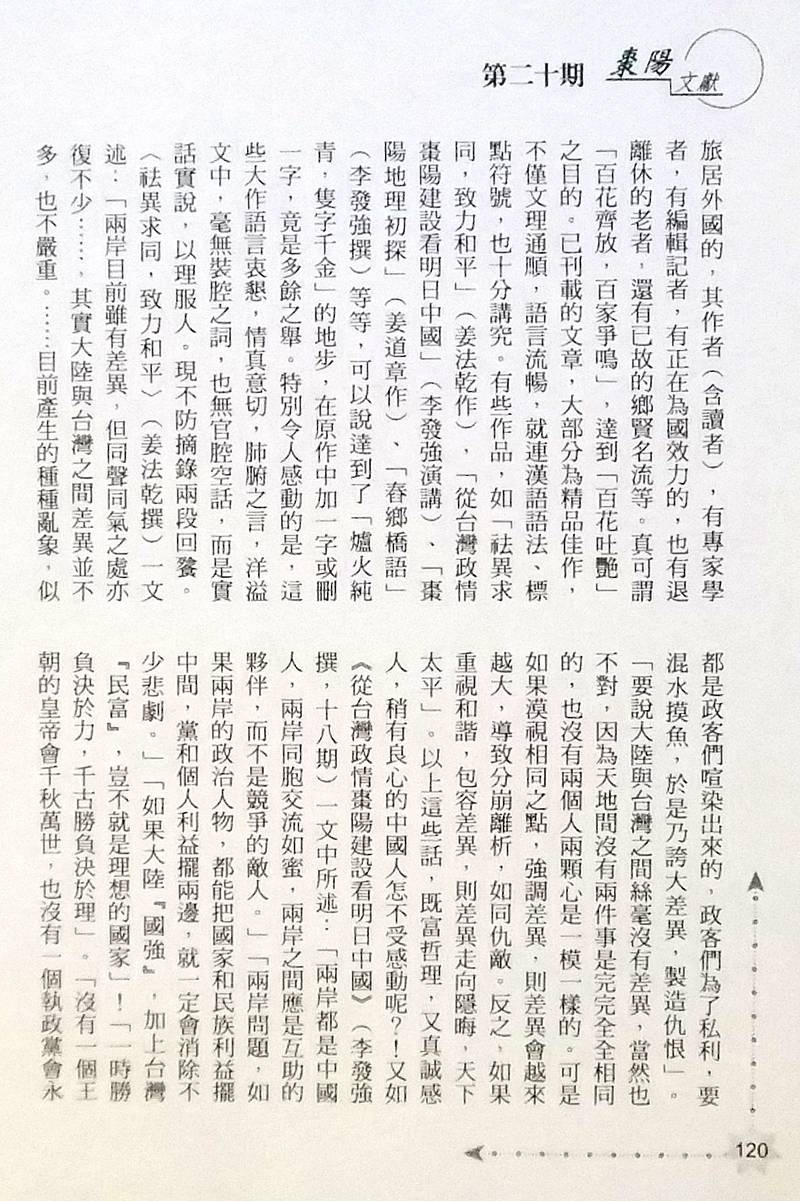 棗陽文獻
第二十期
旅居外國的，其作者（含讀者），有專家學
者，有編輯記者，有正在為國效力的，也有退
離休的老者，還有已故的鄉賢名流等。真可謂
「百花齊放，百家爭鳴」，達到「百花吐艷」
之目的。已刊載的文章，大部分為精品佳作，
不僅文理通順，語言流暢，就連漢語語法、標
點符號，也十分講究。有些作品，如「祛異求
同，致力和平」（姜法乾作），「從台灣政情
棗陽建設看明日中國」（李發強演講）、「棗
陽地理初探」（姜道章作）、「春鄉橋語」
（李發強撰）等等，可以說達到了「爐火純
青，隻字千金」的地步，在原作中加一字或刪
一字，竟是多餘之舉。特別令人感動的是，這
些大作語言衷懇，情真意切，肺腑之言，洋溢
文中，毫無裝腔之詞，也無官腔空話，而是實
話實說，以理服人。現不防摘錄兩段回饗。
（祛異求同，致力和平）（姜法乾撰）一文
述：「兩岸目前雖有差異，但同聲同氣之處亦
復不少……，其實大陸與台灣之間差異並不
多，也不嚴重。……目前產生的種種亂象，似
都是政客們喧染出來的，政客們為了私利，要
混水摸魚，於是乃誇大差異，製造仇恨」。
「要說大陸與台灣之間絲毫沒有差異，當然也
不對，因為天地間沒有兩件事是完完全全相同
的，也沒有兩個人兩顆心是一模一樣的。可是
如果漠視相同之點，強調差異，則差異會越來
越大，導致分崩離析，如同仇敵。反之，如果
重視和諧，包容差異，則差異走向隱晦，天下
太平」。以上這些話，既富哲理，又真誠感
人，稍有良心的中國人怎不受感動呢？！又如
《從台灣政情棗陽建設看明日中國》（李發強
撰，十八期）一文中所述：「兩岸都是中國
人，兩岸同胞交流如蜜，兩岸之間應是互助的
夥伴，而不是競爭的敵人。」「兩岸問題，如
果兩岸的政治人物，都能把國家和民族利益擺
中間，黨和個人利益擺兩邊，就一定會消除不
少悲劇。」「如果大陸『國強』，加上台灣
『民富』，豈不就是理想的國家」！「一時勝
負決於力，千古勝負決於理」。「沒有一個王
朝的皇帝會千秋萬世，也沒有一個執政黨會永
120